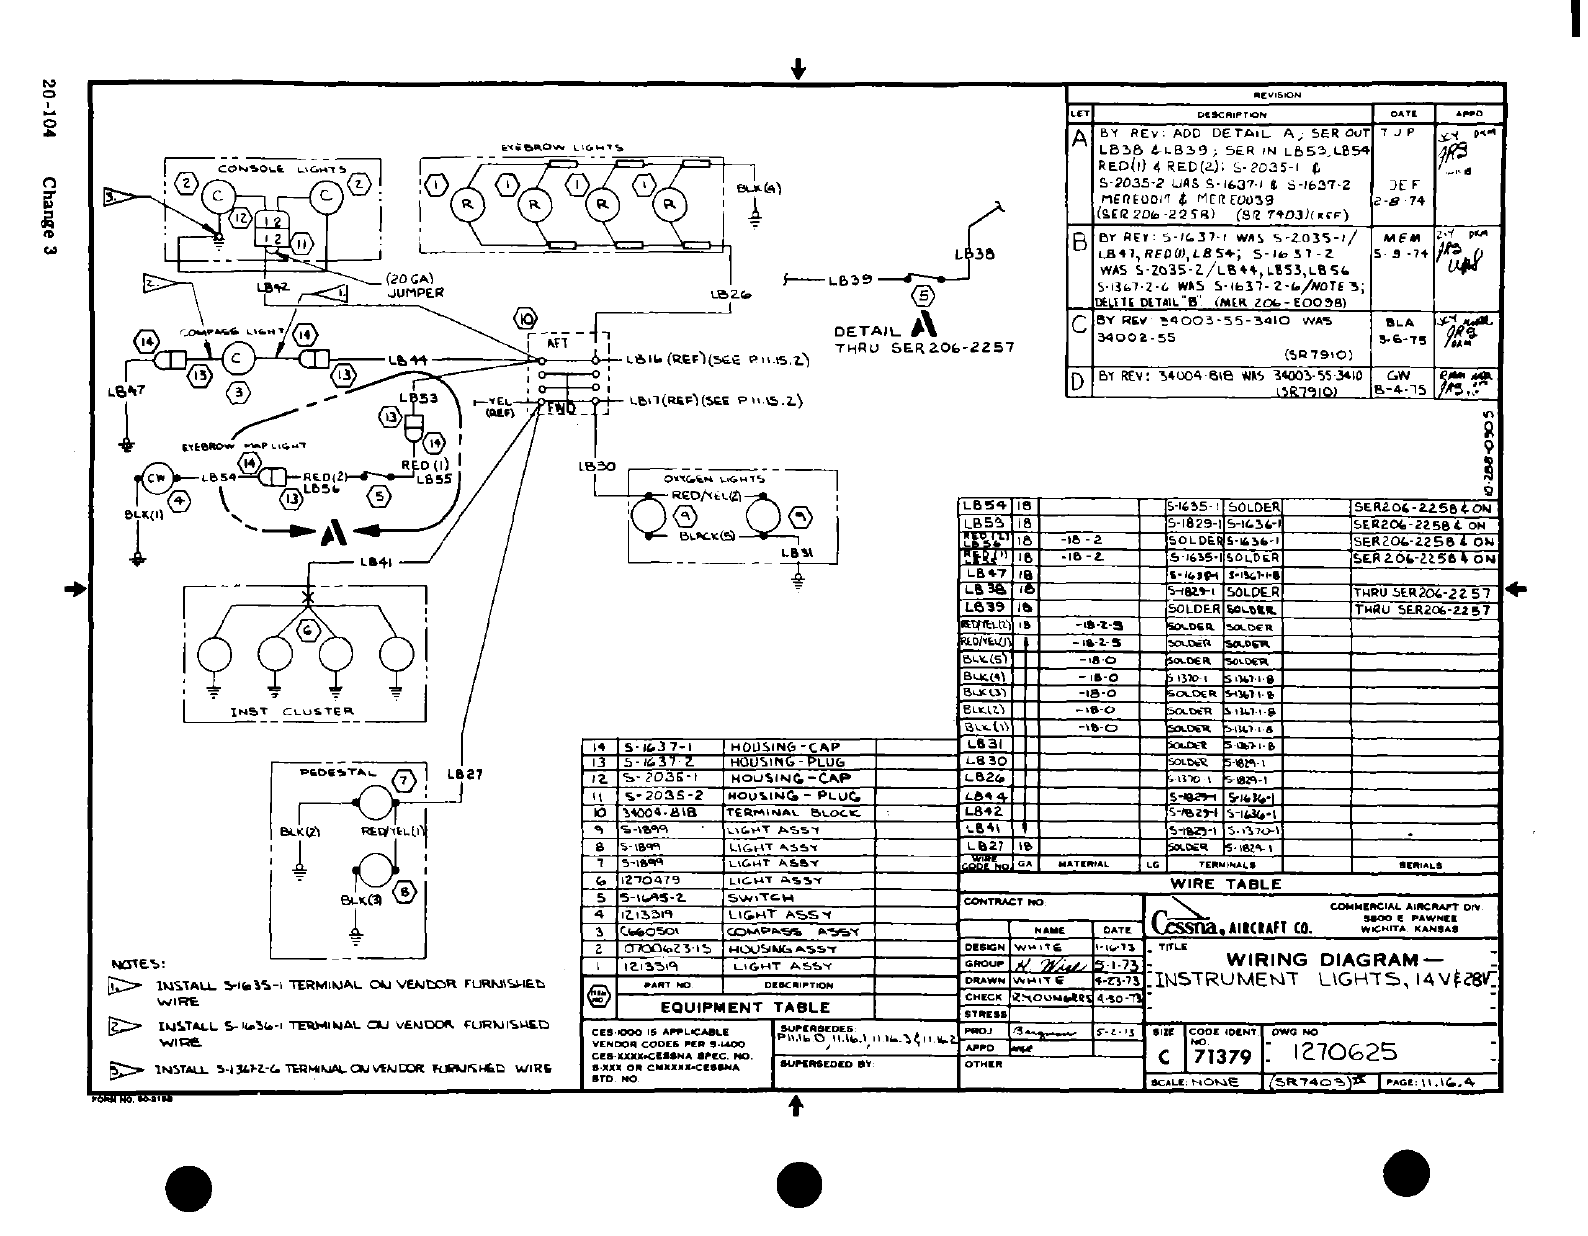 20-104 Change 3
REVISION
LET DESCRIPTION DATE APPD
A BY REV: ADD DETAIL A; SER OUT
LB38 & LB39; SER IN LB53, LB54
RED(1) & RED(2); S-2035-1 &
S-2035-2 WAS S-1637-1 & S-1637-2
(SER 206-2258) (SR 7403)(REF)
TJP
DEF
2-8-74
B BY REV: S-1637-1 WAS S-2035-1/
LB47, RED(1), LB54; S-1637-2
WAS S-2035-2/LB44, LB53, LB56
S-1367-2-6 WAS S-1637-2-6/NOTE 3;
DELETE DETAIL "B" (MER 206-E0098)
MEM
5-9-74
C BY REV 34003-55-3410 WAS
34002-55
(SR7910)
BLA
3-6-75
D BY REV: 34004-81B WAS 34003-55-3410
(SR7910)
GW
8-4-75
CONSOLE LIGHTS
2 C C 2
12
1 2
1 2
11
3.
2.
1.
LB42
(20 GA)
JUMPER
EYEBROW LIGHTS
1 1 1 1
R R R R
BLK(4)
LB26
LB38
LB39
5
DETAIL A
THRU SER 206-2257
COMPASS LIGHT
14 C 14
13 3 13
LB44
LB47
10
AFT
LB16 (REF)(SEE P 11.15.2)
YEL
(REF)
FWD
LB17 (REF)(SEE P 11.15.2)
LB53
13
14
RED(1)
LB55
EYEBROW MAP LIGHT
14
CW LB54 RED(2)
LB56
4 13 5
BLK(1)
A
LB41
LB30
OXYGEN LIGHTS
RED/YEL(2)
9 9
BLACK(5)
LB31
6
INST CLUSTER
PEDESTAL
7
LB27
BLK(2) RED/YEL(1)
BLK(3)
8
NOTES:
1. INSTALL S-1635-1 TERMINAL ON VENDOR FURNISHED
WIRE
2. INSTALL S-1636-1 TERMINAL ON VENDOR FURNISHED
WIRE
3. INSTALL S-1367-2-6 TERMINAL ON VENDOR FURNISHED WIRE
14 S-1637-1 HOUSING-CAP
13 S-1637-2 HOUSING-PLUG
12 S-2035-1 HOUSING-CAP
11 S-2035-2 HOUSING-PLUG
10 34004-81B TERMINAL BLOCK
9 S-1899 LIGHT ASSY
8 S-1899 LIGHT ASSY
7 S-1899 LIGHT ASSY
6 1270479 LIGHT ASSY
5 S-1695-2 SWITCH
4 1213319 LIGHT ASSY
3 C660501 COMPASS ASSY
2 0700623-15 HOUSING ASSY
1 1213319 LIGHT ASSY
ITEM NO. PART NO DESCRIPTION
EQUIPMENT TABLE
LB54 18 S-1635-1 SOLDER SER206-2258 & ON
LB53 18 S-1829-1 S-1636-1 SER206-2258 & ON
RED(2) LB56 18 -18-2 SOLDER S-1636-1 SER206-2258 & ON
18 -18-2 S-1635-1 SOLDER SER206-2258 & ON
LB47 18 S-1367-1-8
LB38 18 S-1829-1 SOLDER THRU SER206-2257
LB39 18 SOLDER SOLDER THRU SER206-2257
RED/YEL(2) 18 -18-2-5 SOLDER SOLDER
RED/YEL(1) -18-2-5 SOLDER SOLDER
BLK(5) -18-0 SOLDER SOLDER
BLK(4) -18-0 S-1370-1 S-1367-1-8
BLK(3) -18-0 SOLDER S-1367-1-8
BLK(2) -18-0 SOLDER S-1367-1-8
BLK(1) -18-0 SOLDER S-1367-1-8
LB31 SOLDER S-1367-1-8
LB30 SOLDER S-1829-1
LB26 S-1370-1 S-1829-1
LB44 S-1829-1 S-1636-1
LB42 S-1829-1 S-1636-1
LB41 S-1829-1 S-1370-1
LB27 18 SOLDER S-1829-1
WIRE CODE NO. GA MATERIAL LG TERMINALS SERIALS
WIRE TABLE
CES-1000 IS APPLICABLE
VENDOR CODES PER S-1400
CES-XXXX=CESSNA SPEC. NO.
S-XXX OR CMXXXX=CESSNA
STD. NO.
SUPERSEDES:
P11.16.0, 11.16.1, 11.16.3 & 11.16.2
SUPERSEDED BY:
CONTRACT NO.
NAME DATE
DESIGN WHITE 1-16-73
GROUP K Wise 5-1-73
DRAWN WHITE 4-23-73
CHECK 4-30-73
STRESS
PROJ 5-2-73
APPD
OTHER
Cessna AIRCRAFT CO.
COMMERCIAL AIRCRAFT DIV.
5800 E. PAWNEE
WICHITA, KANSAS
TITLE
WIRING DIAGRAM—
INSTRUMENT LIGHTS, 14V & 28V
SIZE CODE IDENT NO. DWG NO
C 71379 1270625
SCALE: NONE (SR7403) PAGE: 11.16.4